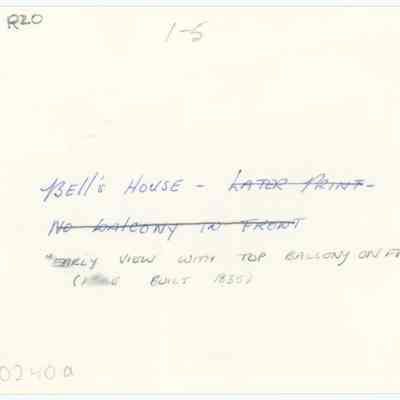 R20
1-5
BELL'S HOUSE - LATER PRINT -
NO balcony IN FRONT
"EARLY VIEW WITH TOP BALLONY ON
BUILT 1835)
0240a